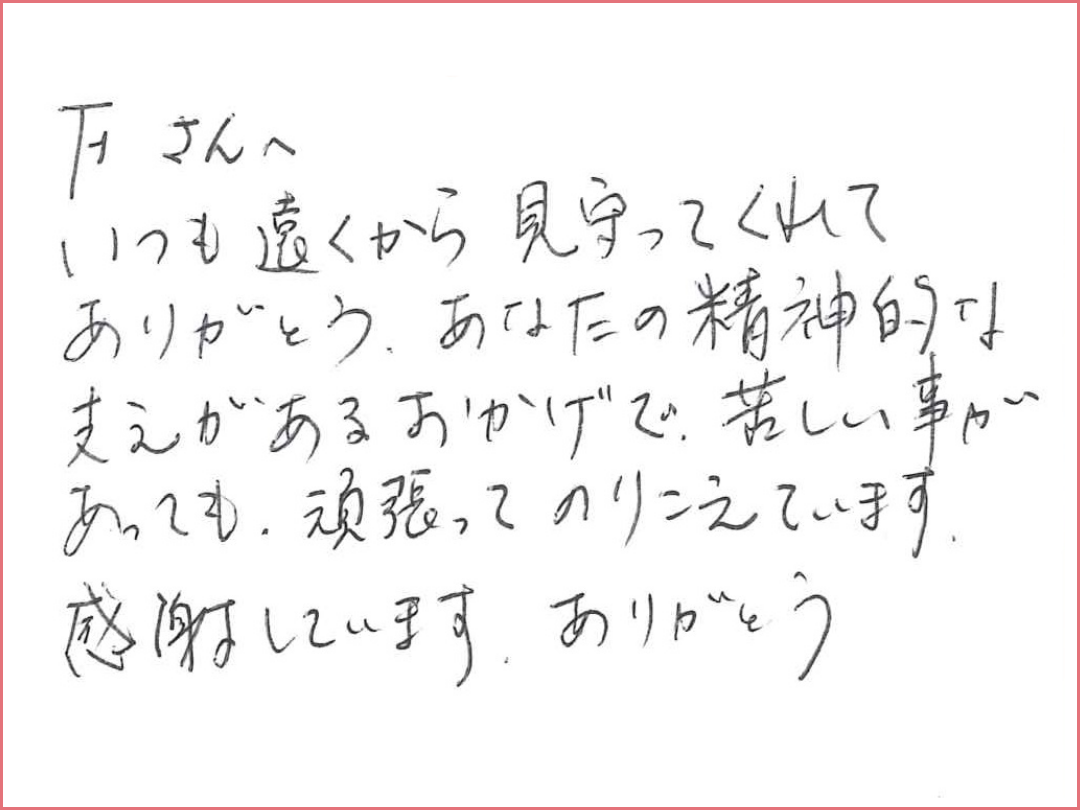 さんへ
いつも遠くから見守ってくれて
ありがとう。あなたの精神的な
支えがあるおかげで、苦しい事が
あっても、頑張ってのりこえています。
感謝しています。ありがとう